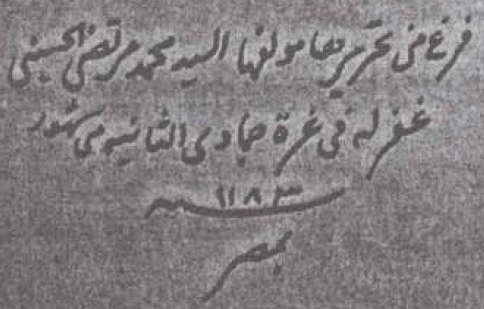 فرغ من تحريرها مولفها السيد محمد مرتضى الحسينى
غفر له فى غرة جمادى الثانيه من شهور
سنة ١١٨٣
بمصر